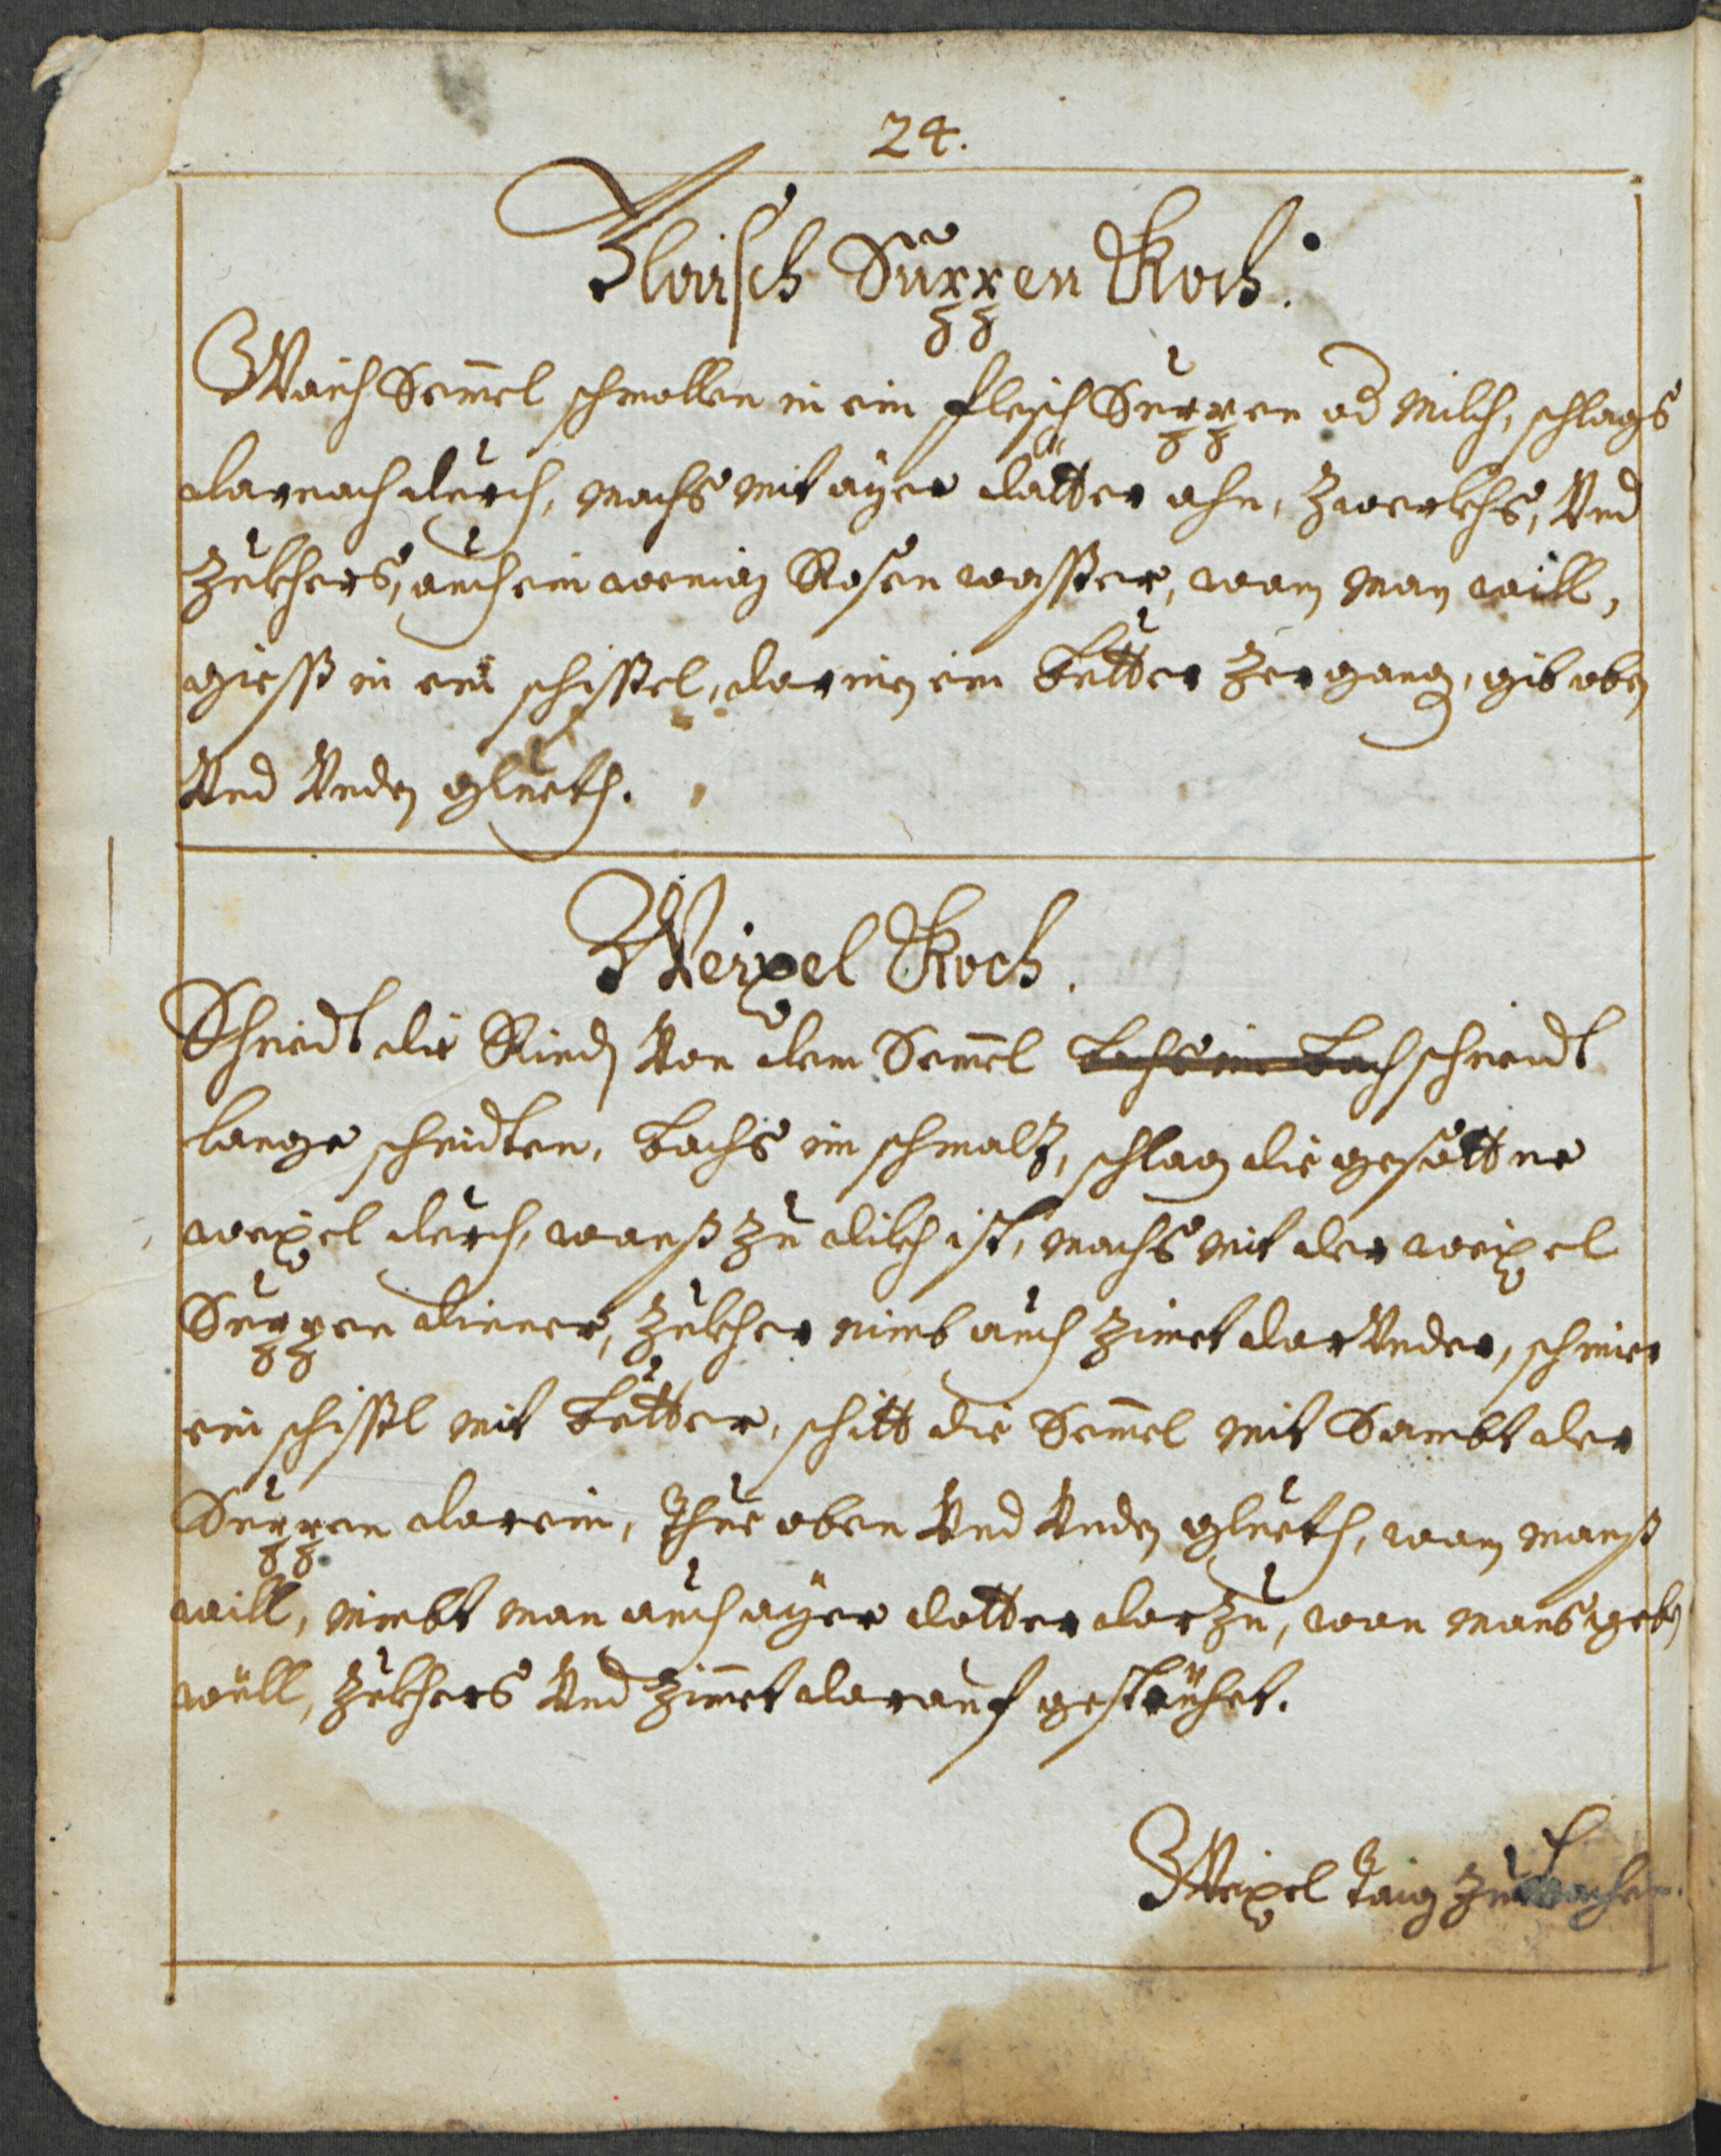 24.
Flaisch Suppen Khoch.
Waich Sem̄el schmollen in ein fleisch Suppen od Milch, schlags
darnach durch, machs mit ayer dätter ahn, Zwerkhs, Vnd
Zukhers, auch ein wenig Rosen wasser, wan man will,
giess in ein schissel, darin ein butter Zergang, gib oben
Vnd Vnden glueth.
Weixel Khoch.
Schneidt die Rindn Von dem Sem̄el schneidt
lange schnidten, bachs im schmaltz, schlag die gesottne
weixel durch, wanß Zu dikh ist, machs mit der weixel
Suppen dinner, Zukher nimb auch Zimet dar Vnder, schmier
ein schissl mit butter, schitt die Sem̄el mit Sambt der
Suppen darein, Thue oben Vnd Vnden glueth, wan manß
will, nimbt man auch ayer dotter dar Zu, wan mans geben
will, Zukhers Vnd Zim̄et darauf gesträhet.
Weixel Taig Zu bachen.